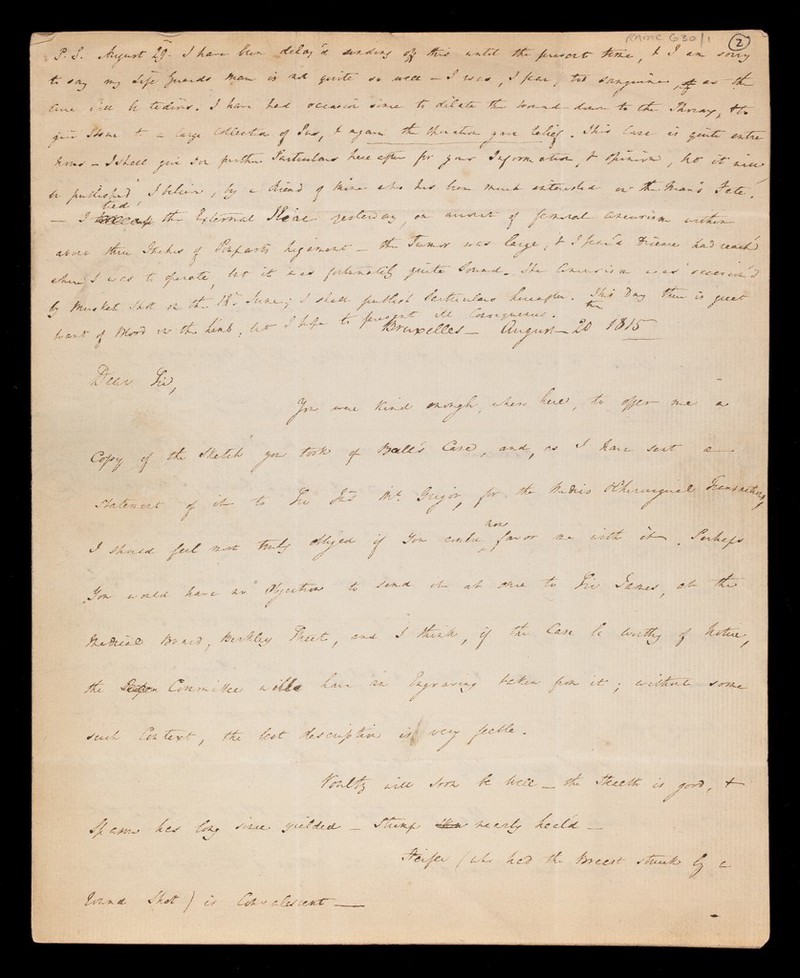 RAMC 630/1 2
P.S. August 29. I have been delay'd sending off this until the present time, & I am sorry
to say my Life Guards man is not quite so well – I was, I fear, too sanguine, as the
cure will be tedious. I have had occasion since to dilate the wound down to the
give issue to a large Collection of Pus, & again the operation gave relief. This Case is quite extra
– I shall give you further Particulars here after for your Information, & Opinion, but it will
be published, I believe, by a friend of mine who has been much interested in the Man's Fate.
– I tied the External Iliac yesterday, on account of femoral aneurism within
about three Inches of Pouparts ligament – the Tumor was large, & I fear'd Disease had reach'd
where I was to operate, but it was fortunately quite Sound. The Aneurism was occasion'd
by Musket Shot on the 18th June; I shall publish particulars hereafter. This Day there is great
want of Blood in the limb, but I hope to prevent ill Consequences.
Bruxelles – August 20 1815
Dear Sir,
You were kind enough, when here, to offer me a
Copy of the Sketch you took of Case, and, as I have sent a
Statement of it to Sir Jas Mc Grigor, for the Medico Chirurgical Transactions,
I should feel most truly obliged if You could now favor me with it. Perhaps
You would have no objection to send it at once to Sir James, at the
Medical Board, Berkley Street, and I think, if the Case be worthy of notice,
the Committee will have an Engraving taken from it; without some
such Context, the best description is very feeble.
Voultz will soon be well – the Health is good, &
Spasm has long since yielded – Stump nearly heal'd –
(who had the Breast struck by a
round Shot) is Convalescent –